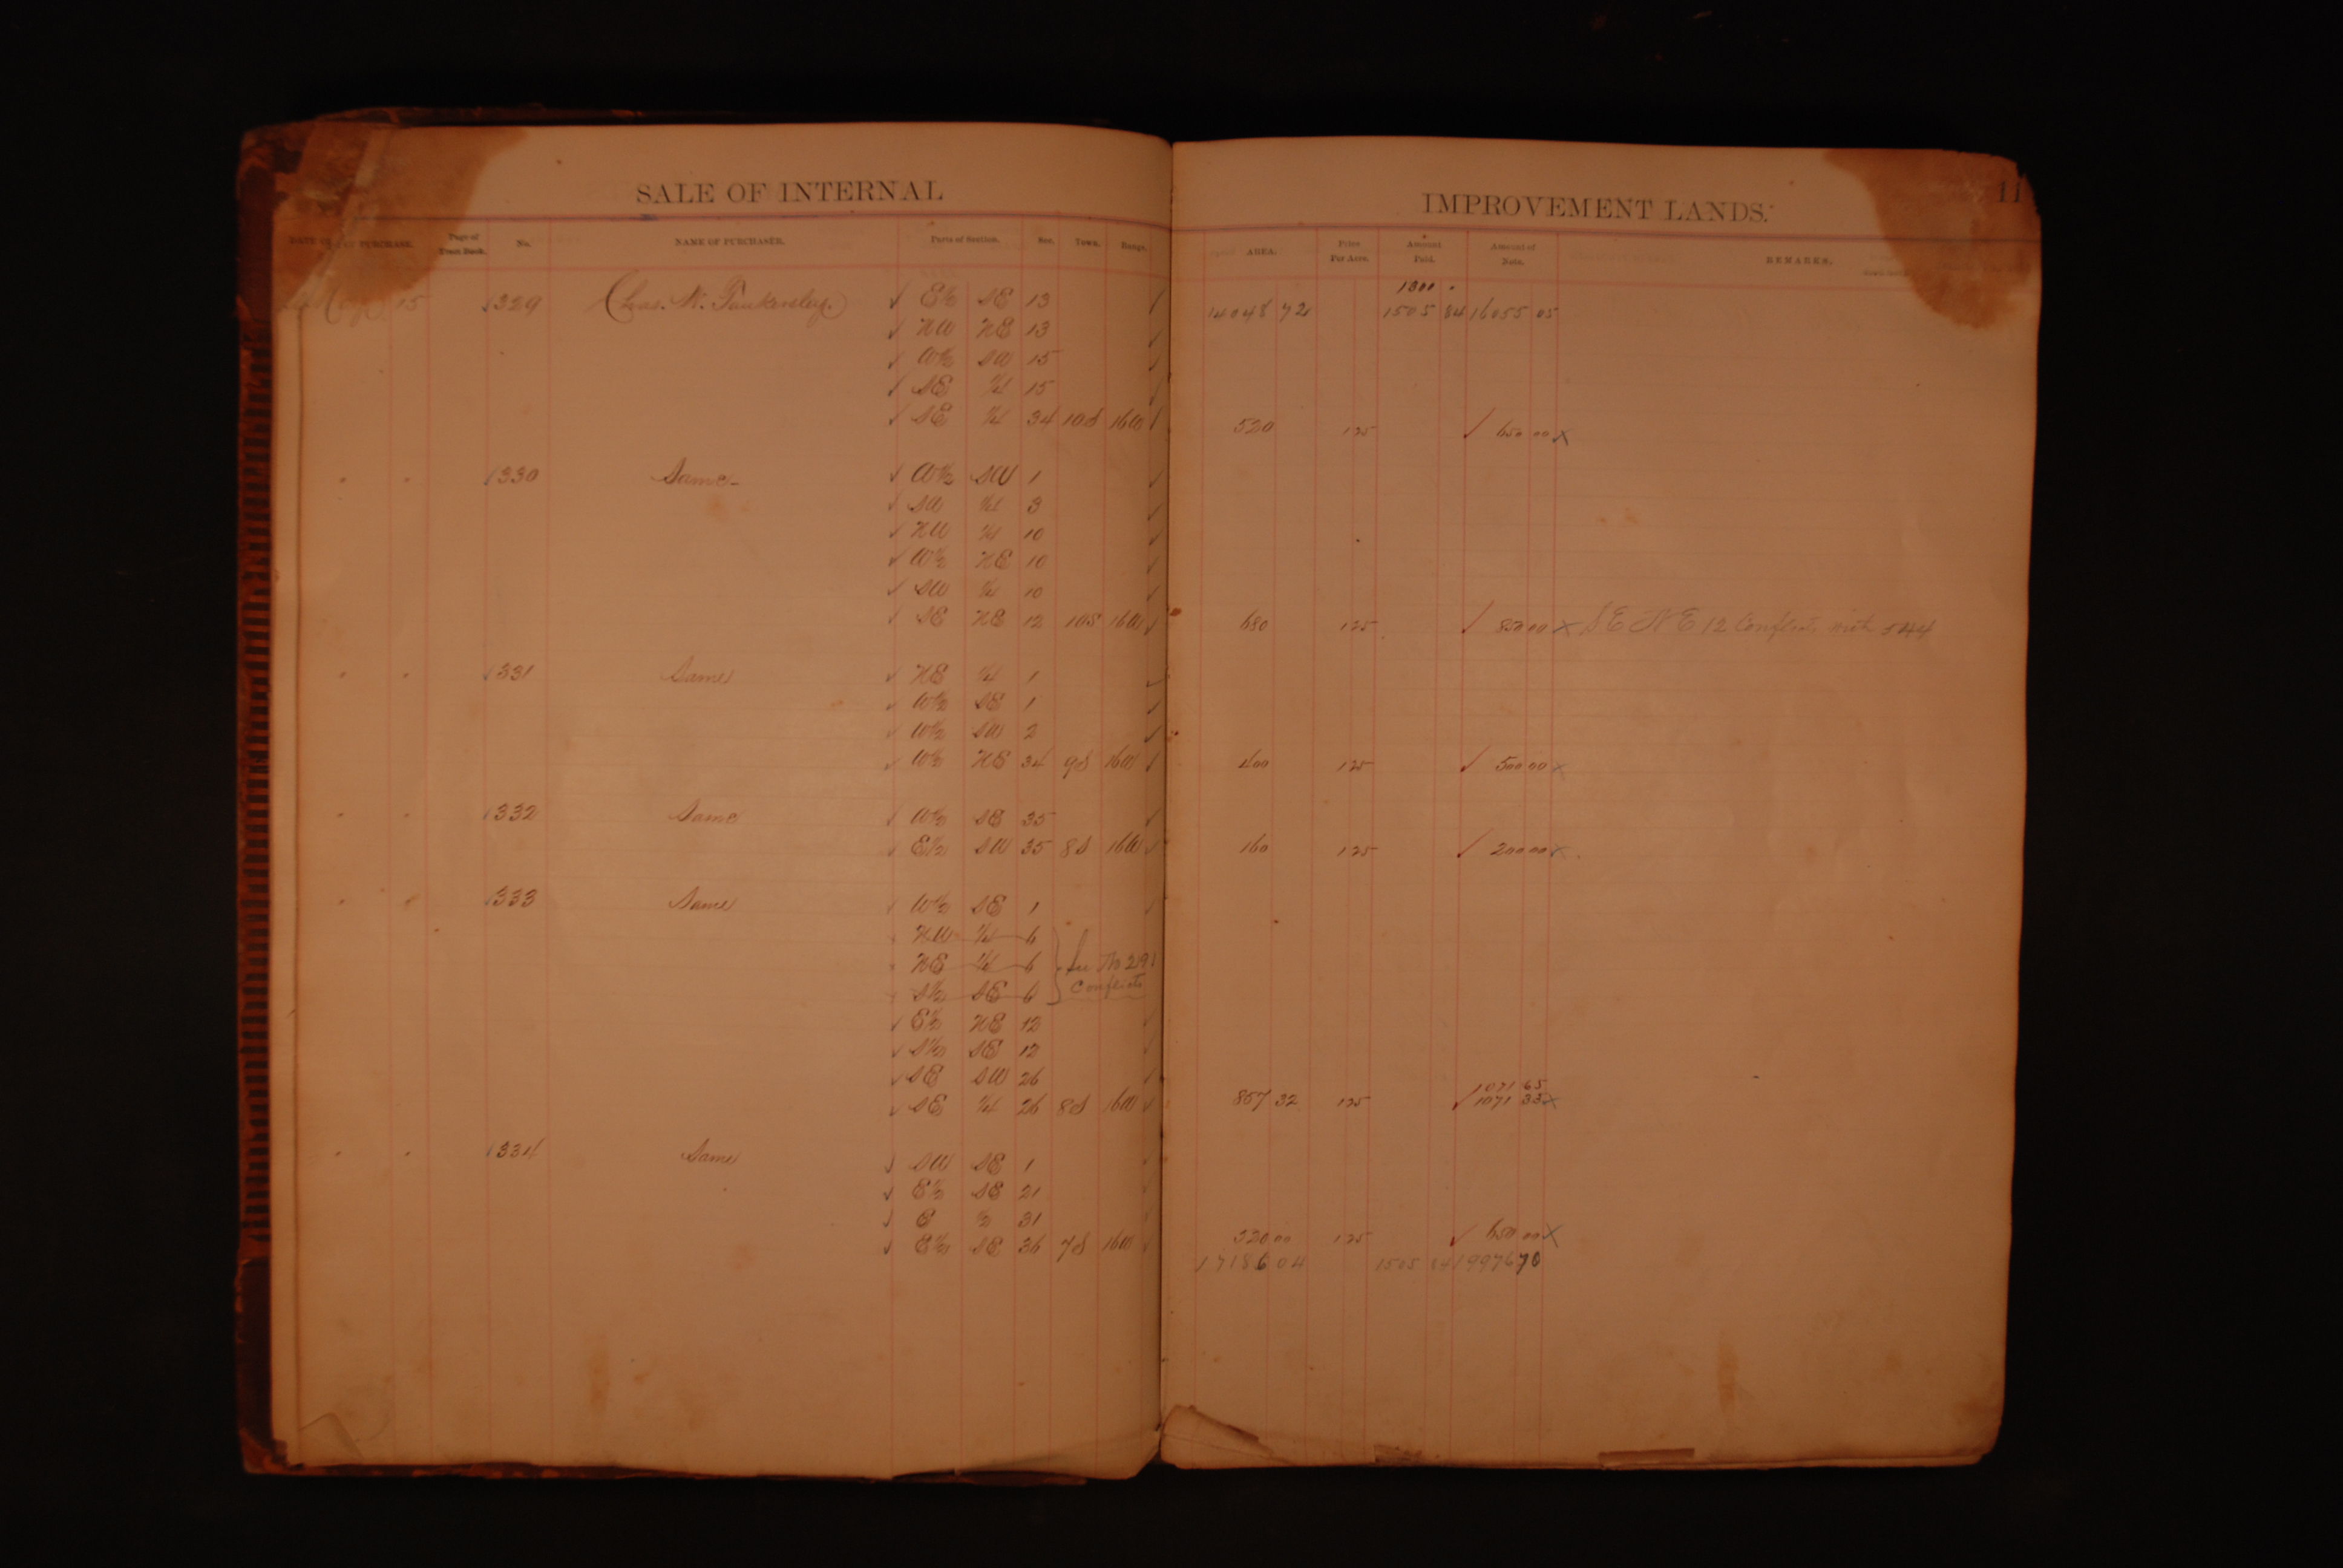 SALE OF INTERNAL IMPROVEMENT LANDS.
11
DATE OF PURCHASE. Page of Tract Book. No. NAME OF PURCHASER. Parts of Section. Sec. Town. Range. AREA. Price Per Acre. Amount Paid. Amount of Note. REMARKS.
1300
15 329 Chas. W. Tankersley. E½ SE 13 14048 72 1505 84 16055 05
NW NE 13
W½ SW 15
SE ¼ 15
SE ¼ 34 10S 16W 520 125 650 00 X
" " 330 Same W½ SW 1
SW ¼ 3
NW ¼ 10
W½ NE 10
SW ¼ 10
SE NE 12 10S 16W 680 125 850 00 X SE NE 12 Conflicts with 544
" " 331 Same NE ¼ 1
W½ SE 1
W½ SW 2
W½ NE 34 9S 16W 400 125 500 00 X
" " 332 Same W½ SE 35
E½ SW 35 8S 16W 160 125 200 00 X
" " 333 Same W½ SE 1
NW ¼ 6
NE ¼ 6 See No 291
S½ SE 6 Conflicts
E½ NE 12
S½ SE 12
SE SW 26 1071 65
SE ¼ 26 8S 16W 857 32 125 1071 33 X
" " 334 Same SW SE 1
E½ SE 21
E ½ 31
E½ SE 36 7S 16W 520 00 125 650 00 X
17186 04 1505 84 19976 70